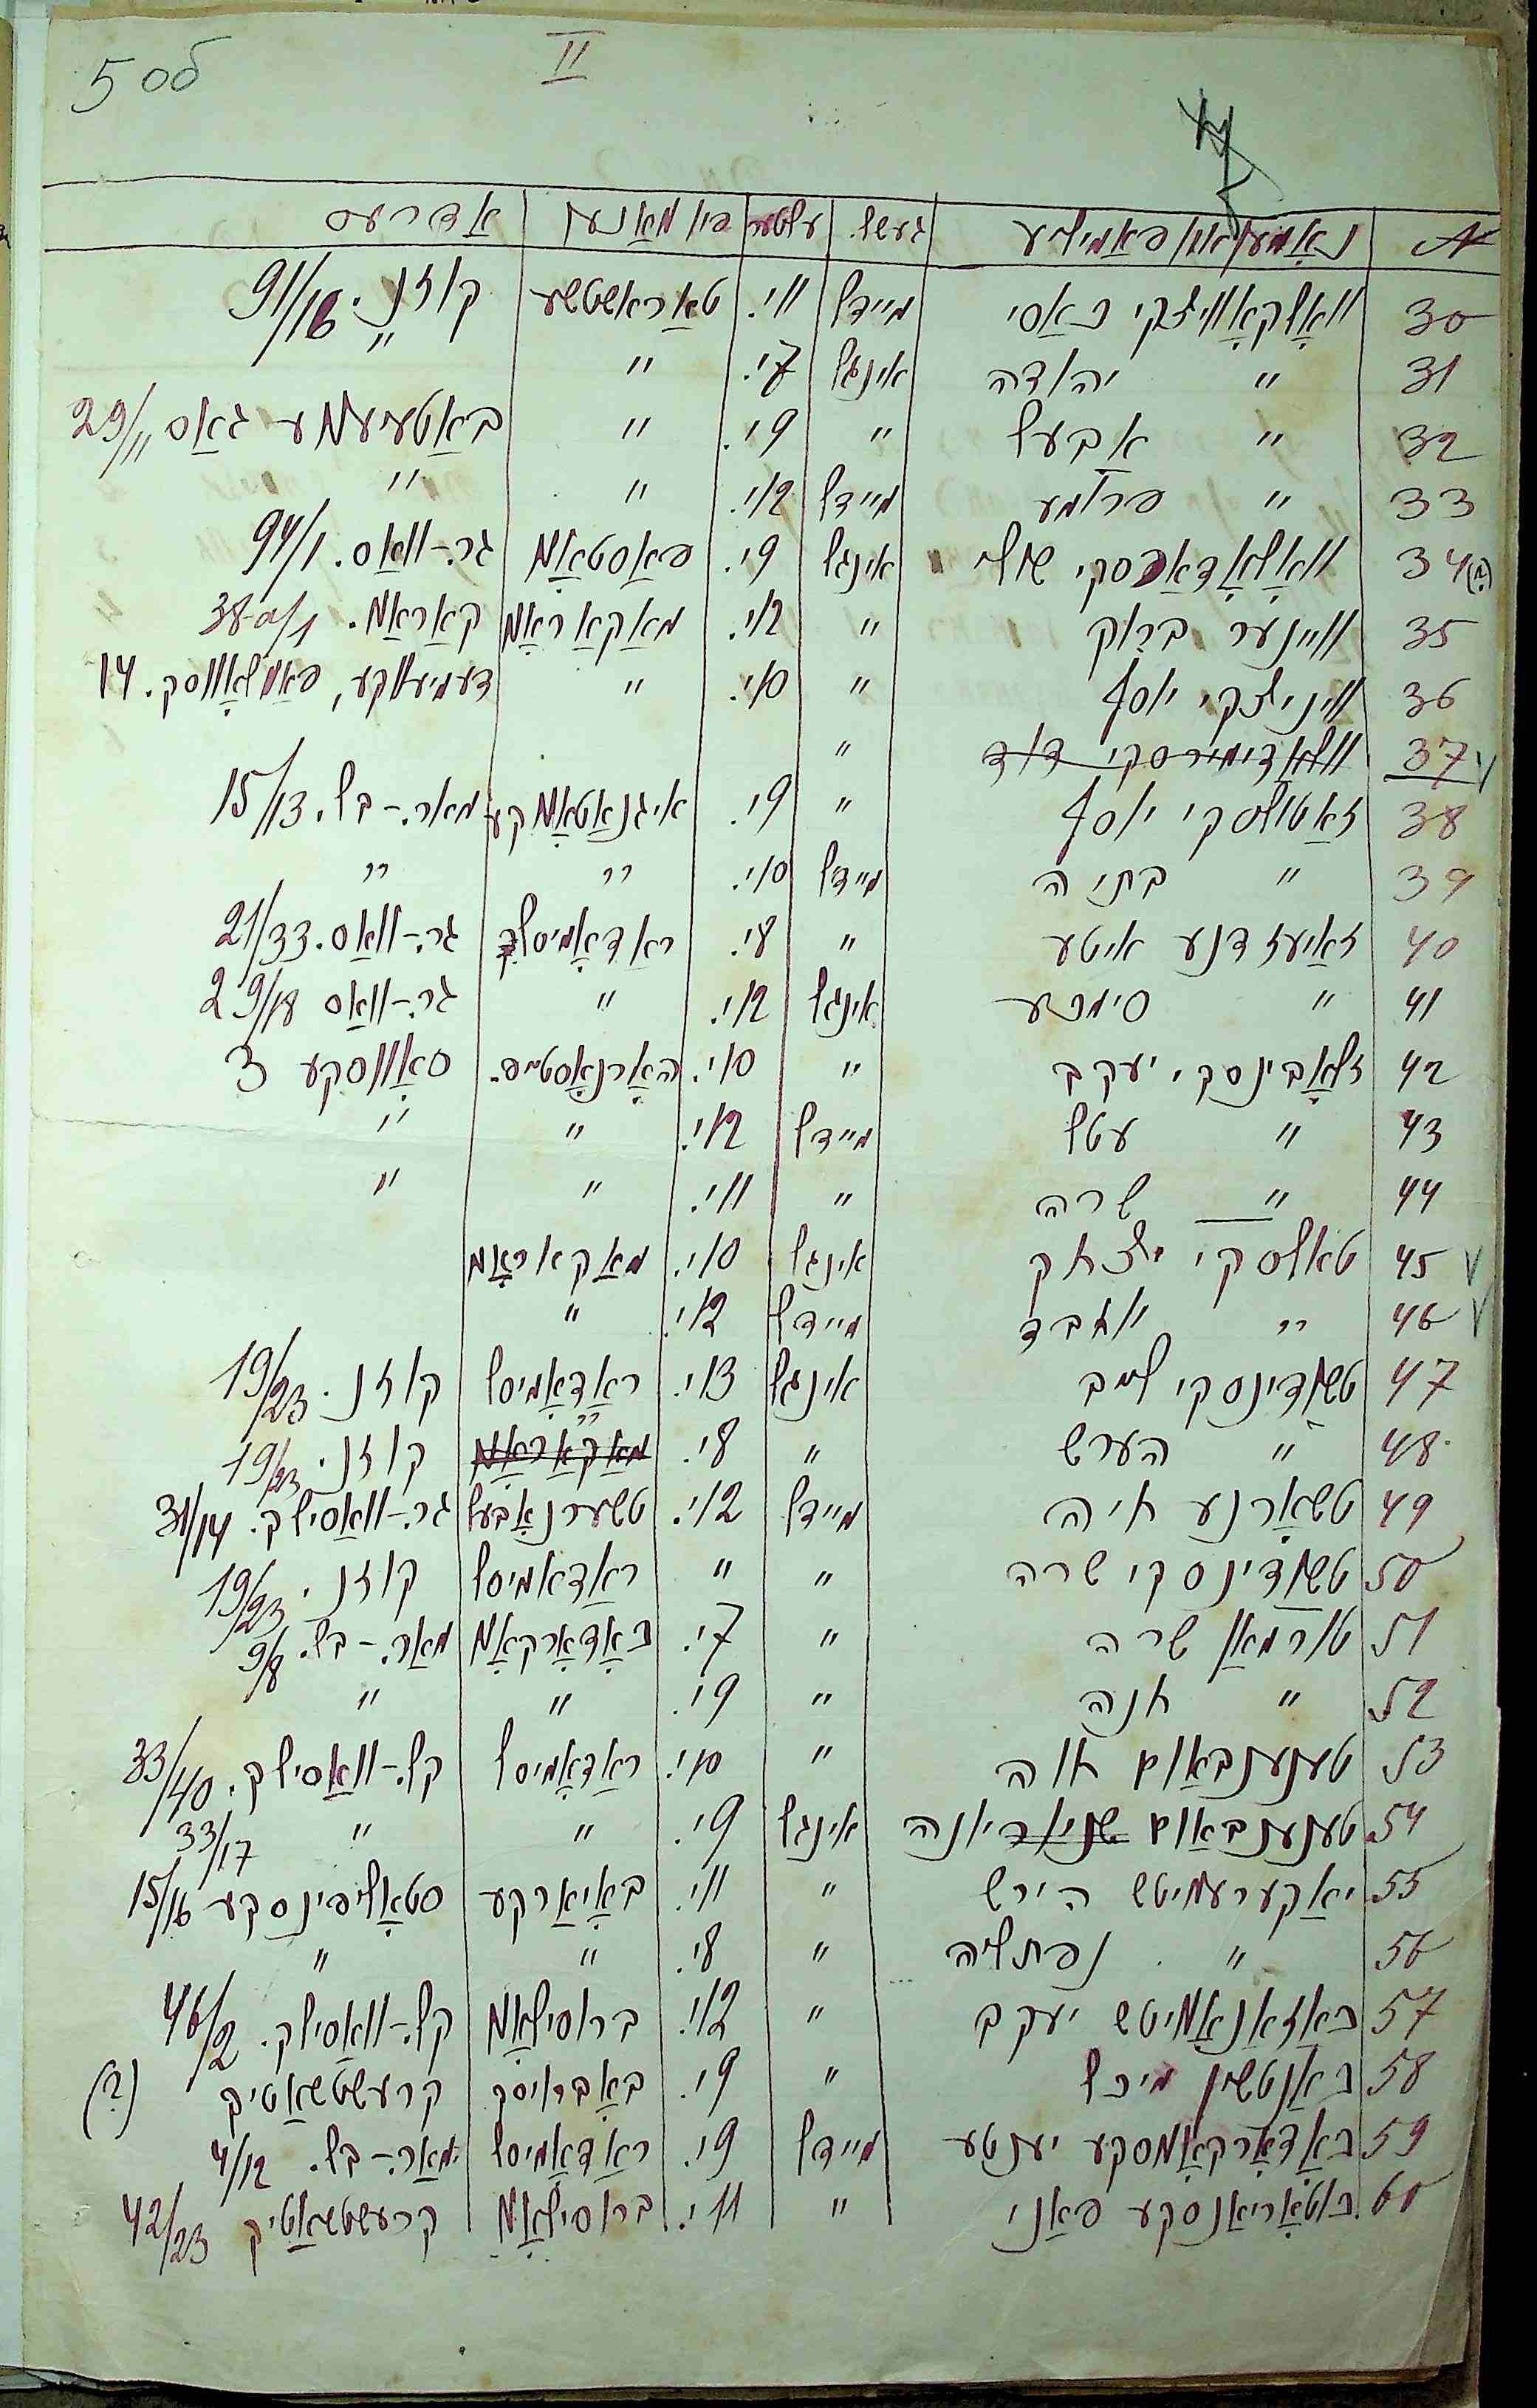 5 об
II
№ נאָמען און פאַמיליע געשל. עלטער פון מאַנען אַדרעס
30 וואָלקאָוויצקי באַסי מיידל 11י. טאַראַשטשע קוזנ. 91/16
31 " יהודה אינגל 7י. " "
32 " אַבעל " 9י. " גאַס 29/11
33 " פרומע מיידל 12י. " "
34 (?) וואָלאָדאַרסקי שולי אינגל 9י. פאַסטאָוו גר.-וואַס. 94/1
35 וויינער ברוך " 12י. מאַקאַראָוו קאַראַוו. 38-а/1
36 וויניצקי יוסף " 10י. " דעמיעווקע, פאַוולאָווסק. 14
37 וולאַדימירסקי דוד "
38 זאַטולסקי יוסף " 9י. איגנאַטאָווקע מאַר.-בל. 15/13
39 " בתיה מיידל 10י. " "
40 זאַיעזדנע איטע " 8י. ראַדאָמיסל גר.-וואַס. 21/33
41 " סימכע אינגל 12י. " גר.-וואַס 29/18
42 זלאָבינסקי יעקב " 10י. האָרנאָסטייפ. סאָווסקע 3
43 " עטל מיידל 12י. " "
44 " שרה " 11י. " "
45 טאַלסקי יצחק אינגל 10י. מאַקאַראָוו
46 " יוכבד מיידל 12י. "
47 טשודינסקי לייב אינגל 13י. ראַדאָמיסל קוזנ. 19/23
48 " הערש " 8י. מאַקאַראָוו " קוזנ. 19/23
49 טשאָרנע חיה מיידל 12י. טשערנאָבעל גר.-וואַסילק. 31/14
50 טשודינסקי שרה " " ראַדאָמיסל קוזנ. 19/23
51 טורמאַן שרה " 7י. כאָדאָרקאָוו מאַר.-בל. 9/8
52 " חנה " 9י. " "
53 טענענבאַום חוה " 10י. ראַדאָמיסל קל.-וואַסילק. 33/40
54 טענענבאַום שניאור יונה אינגל 9י. " " 33/17
55 יאַקערעוויטש הירש " 11י. באָיאַרקע סטאָליפינסקע 15/16
56 " נפתליה " 8י. " "
57 כאַזאַנאָוויטש יעקב " 12י. ברוסילאָוו קל.-וואַסילק. 46/2
58 כאַנטשין מיכל " 9י. באָברויסק קרעשטשאַטיק (?)
59 כאָדאָרקאָווסקע יענטע מיידל 9י. ראַדאָמיסל מאַר.-בל. 4/12
60 כוטאָריאַנסקע פאַני " 11י. ברוסילאָוו קרעשטשאַטיק 42/23